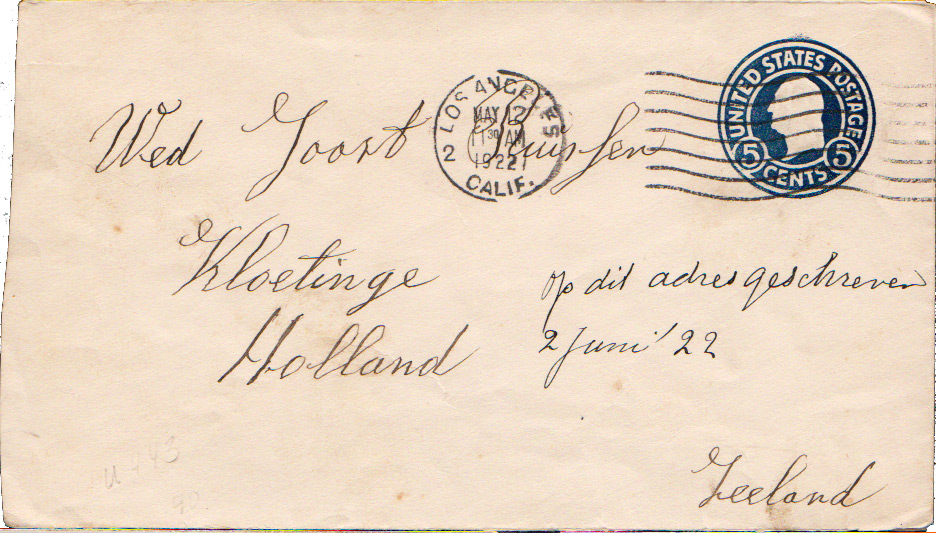 UNITED STATES POSTAGE
5 CENTS 5
LOS ANGELES
MAY 12
11 30 AM
1922
2
CALIF.
Wed Joost
Kloetinge
Holland
op dit adres geschreven
2 Juni '22
Zeeland